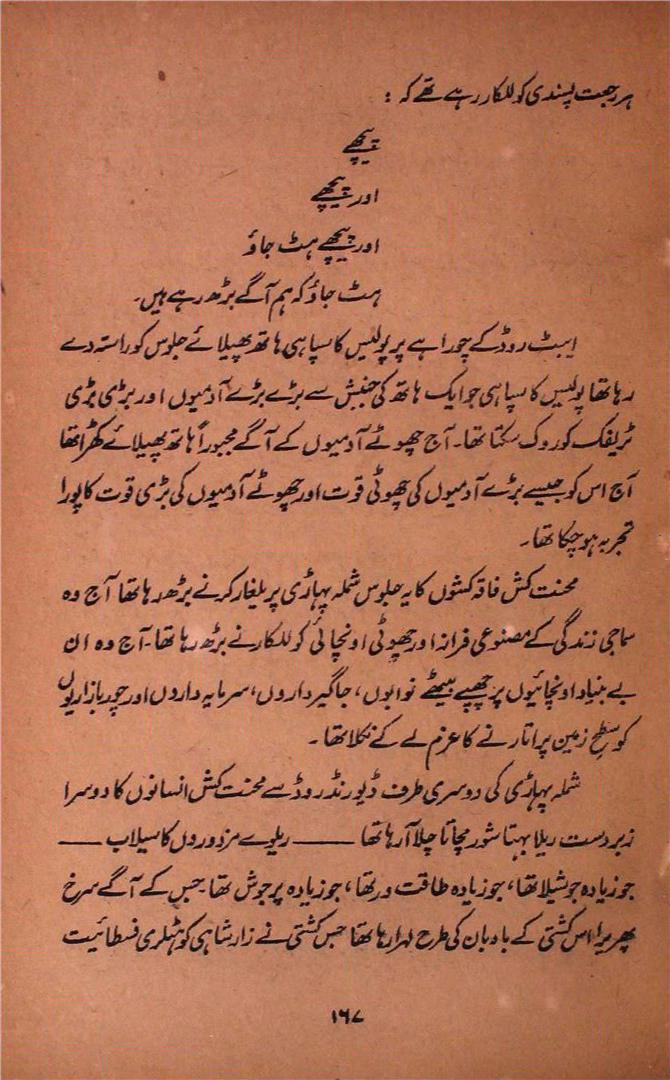 ہر رجعت پسندی کو للکار رہے تھے کہ :
پیچھے
اور پیچھے
اور پیچھے ہٹ جاؤ
ہٹ جاؤ کہ ہم آگے بڑھ رہے ہیں۔
ایبٹ روڈ کے چوراہے پر پولیس کا سپاہی ہاتھ پھیلائے جلوس کو راستہ دے
رہا تھا پولیس کا سپاہی جو ایک ہاتھ کی جنبش سے بڑے بڑے آدمیوں اور بڑی بڑی
ٹریفک کو روک سکتا تھا۔ آج چھوٹے آدمیوں کے آگے مجبوراً ہاتھ پھیلائے کھڑا تھا
آج اس کو جیسے بڑے آدمیوں کی چھوٹی قوت اور چھوٹے آدمیوں کی بڑی قوت کا پورا
تجربہ ہو چکا تھا۔
محنت کش فاقہ کشوں کا یہ جلوس شملہ پہاڑی پر یلغار کرنے بڑھ رہا تھا آج وہ
سماجی زندگی کے مصنوعی فراز اور جھوٹی اونچائی کو للکارنے بڑھ رہا تھا۔ آج وہ ان
بے بنیاد اونچائیوں پر چھپے بیٹھے نوابوں، جاگیرداروں، سرمایہ داروں اور چور بازاریوں
کو سطح زمین پر اتارنے کا عزم لے کے نکلا تھا۔
شملہ پہاڑی کی دوسری طرف ڈیورنڈ روڈ سے محنت کش انسانوں کا دوسرا
زبردست ریلا بہتا شور مچاتا چلا آ رہا تھا —— ریلوے مزدوروں کا سیلاب ——
جو زیادہ جوشیلا تھا، جو زیادہ طاقت ور تھا، جو زیادہ پرجوش تھا جس کے آگے سرخ
پھریرا اس کشتی کے بادبان کی طرح لہرا رہا تھا جس کشتی نے زار شاہی کو ہٹلری فسطائیت
۱۶۷